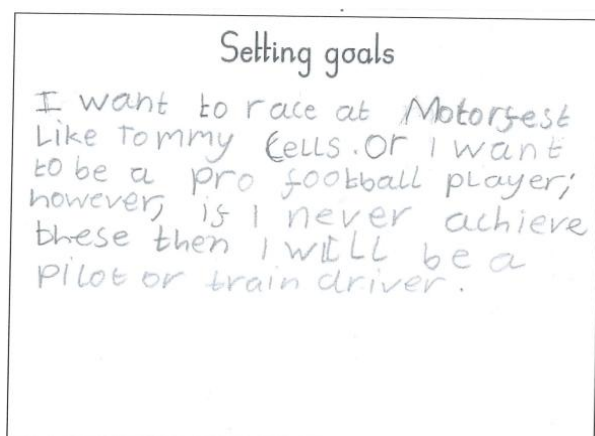 Setting goals
I want to race at Motorfest
Like Tommy Cells. Or I want
to be a pro football player;
however, if I never achieve
these then I will be a
pilot or train driver.